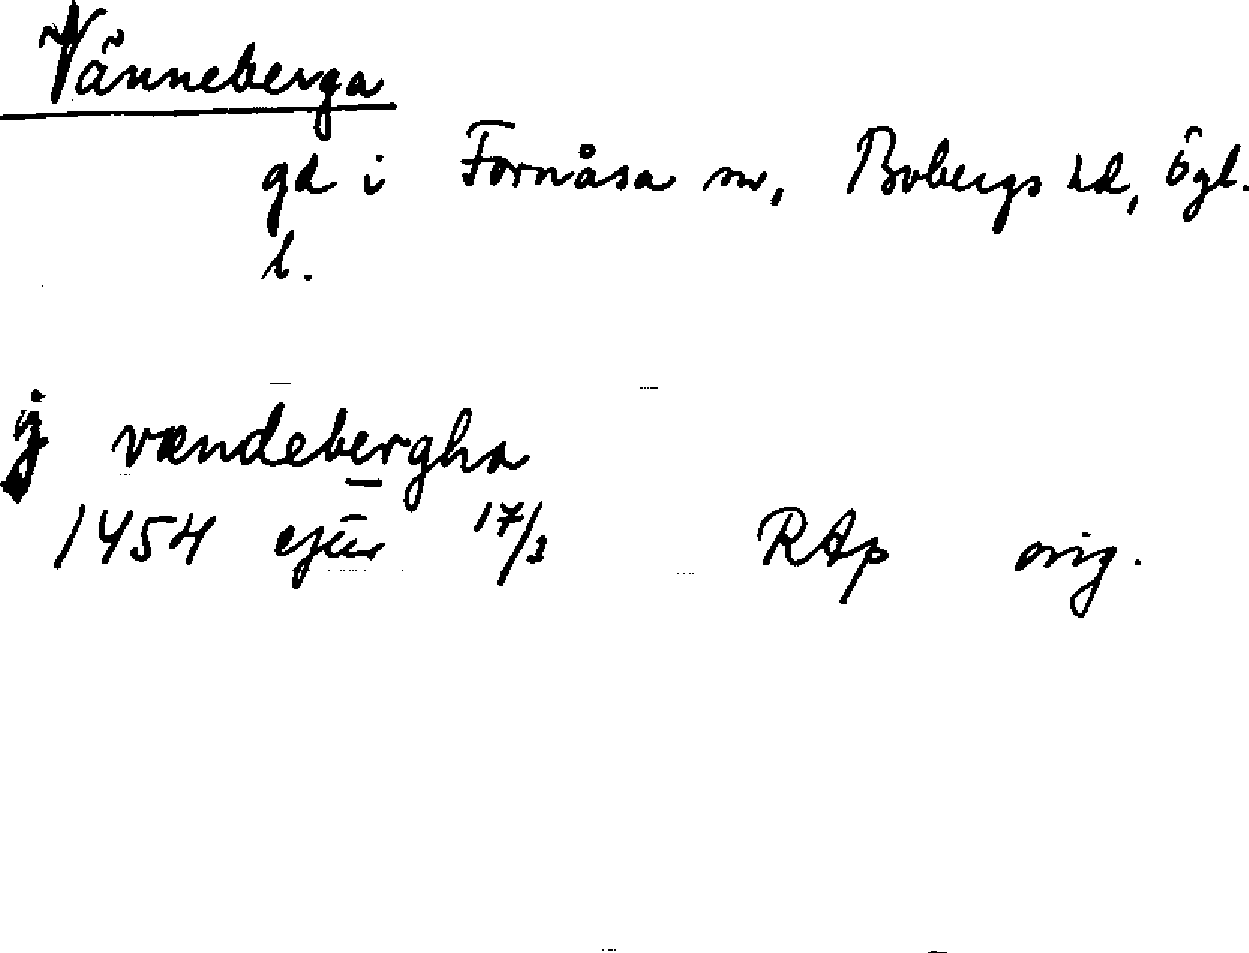 Vänneberga
gd i Fornåsa sn, Bobergs hd, Ögl.
l.
j vændebergha
1454 17/3 RAp orig.